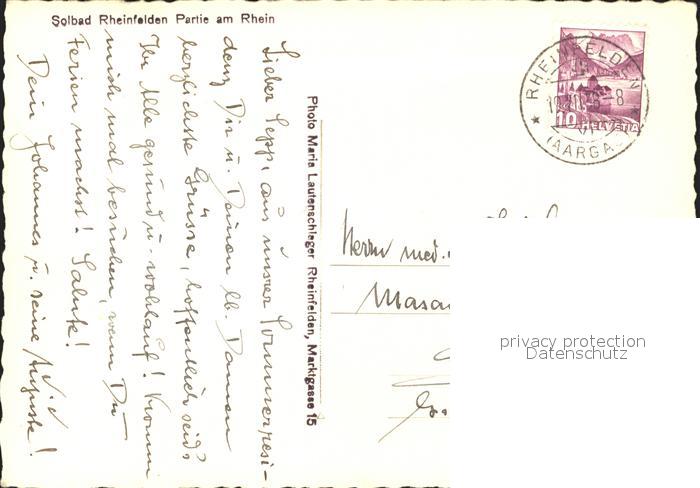 Solbad Rheinfelden Partie am Rhein
Lieber Sepp, aus unsrer Sommerresi-
denz Dir u. Deinen lb. Damen
herzlichste Grüsse, hoffentlich seid
Ihr Alle gesund u. wohlauf! Komm
mich mal besuchen, wenn Du
Ferien machst! Salute!
Dein Johannes u. seine Auguste!
Photo Maria Lautenschlager Rheinfelden, Marktgasse 15
RHEINFELDEN
(AARGA
10 HELVETIA
Herrn med.
privacy protection
Datenschutz